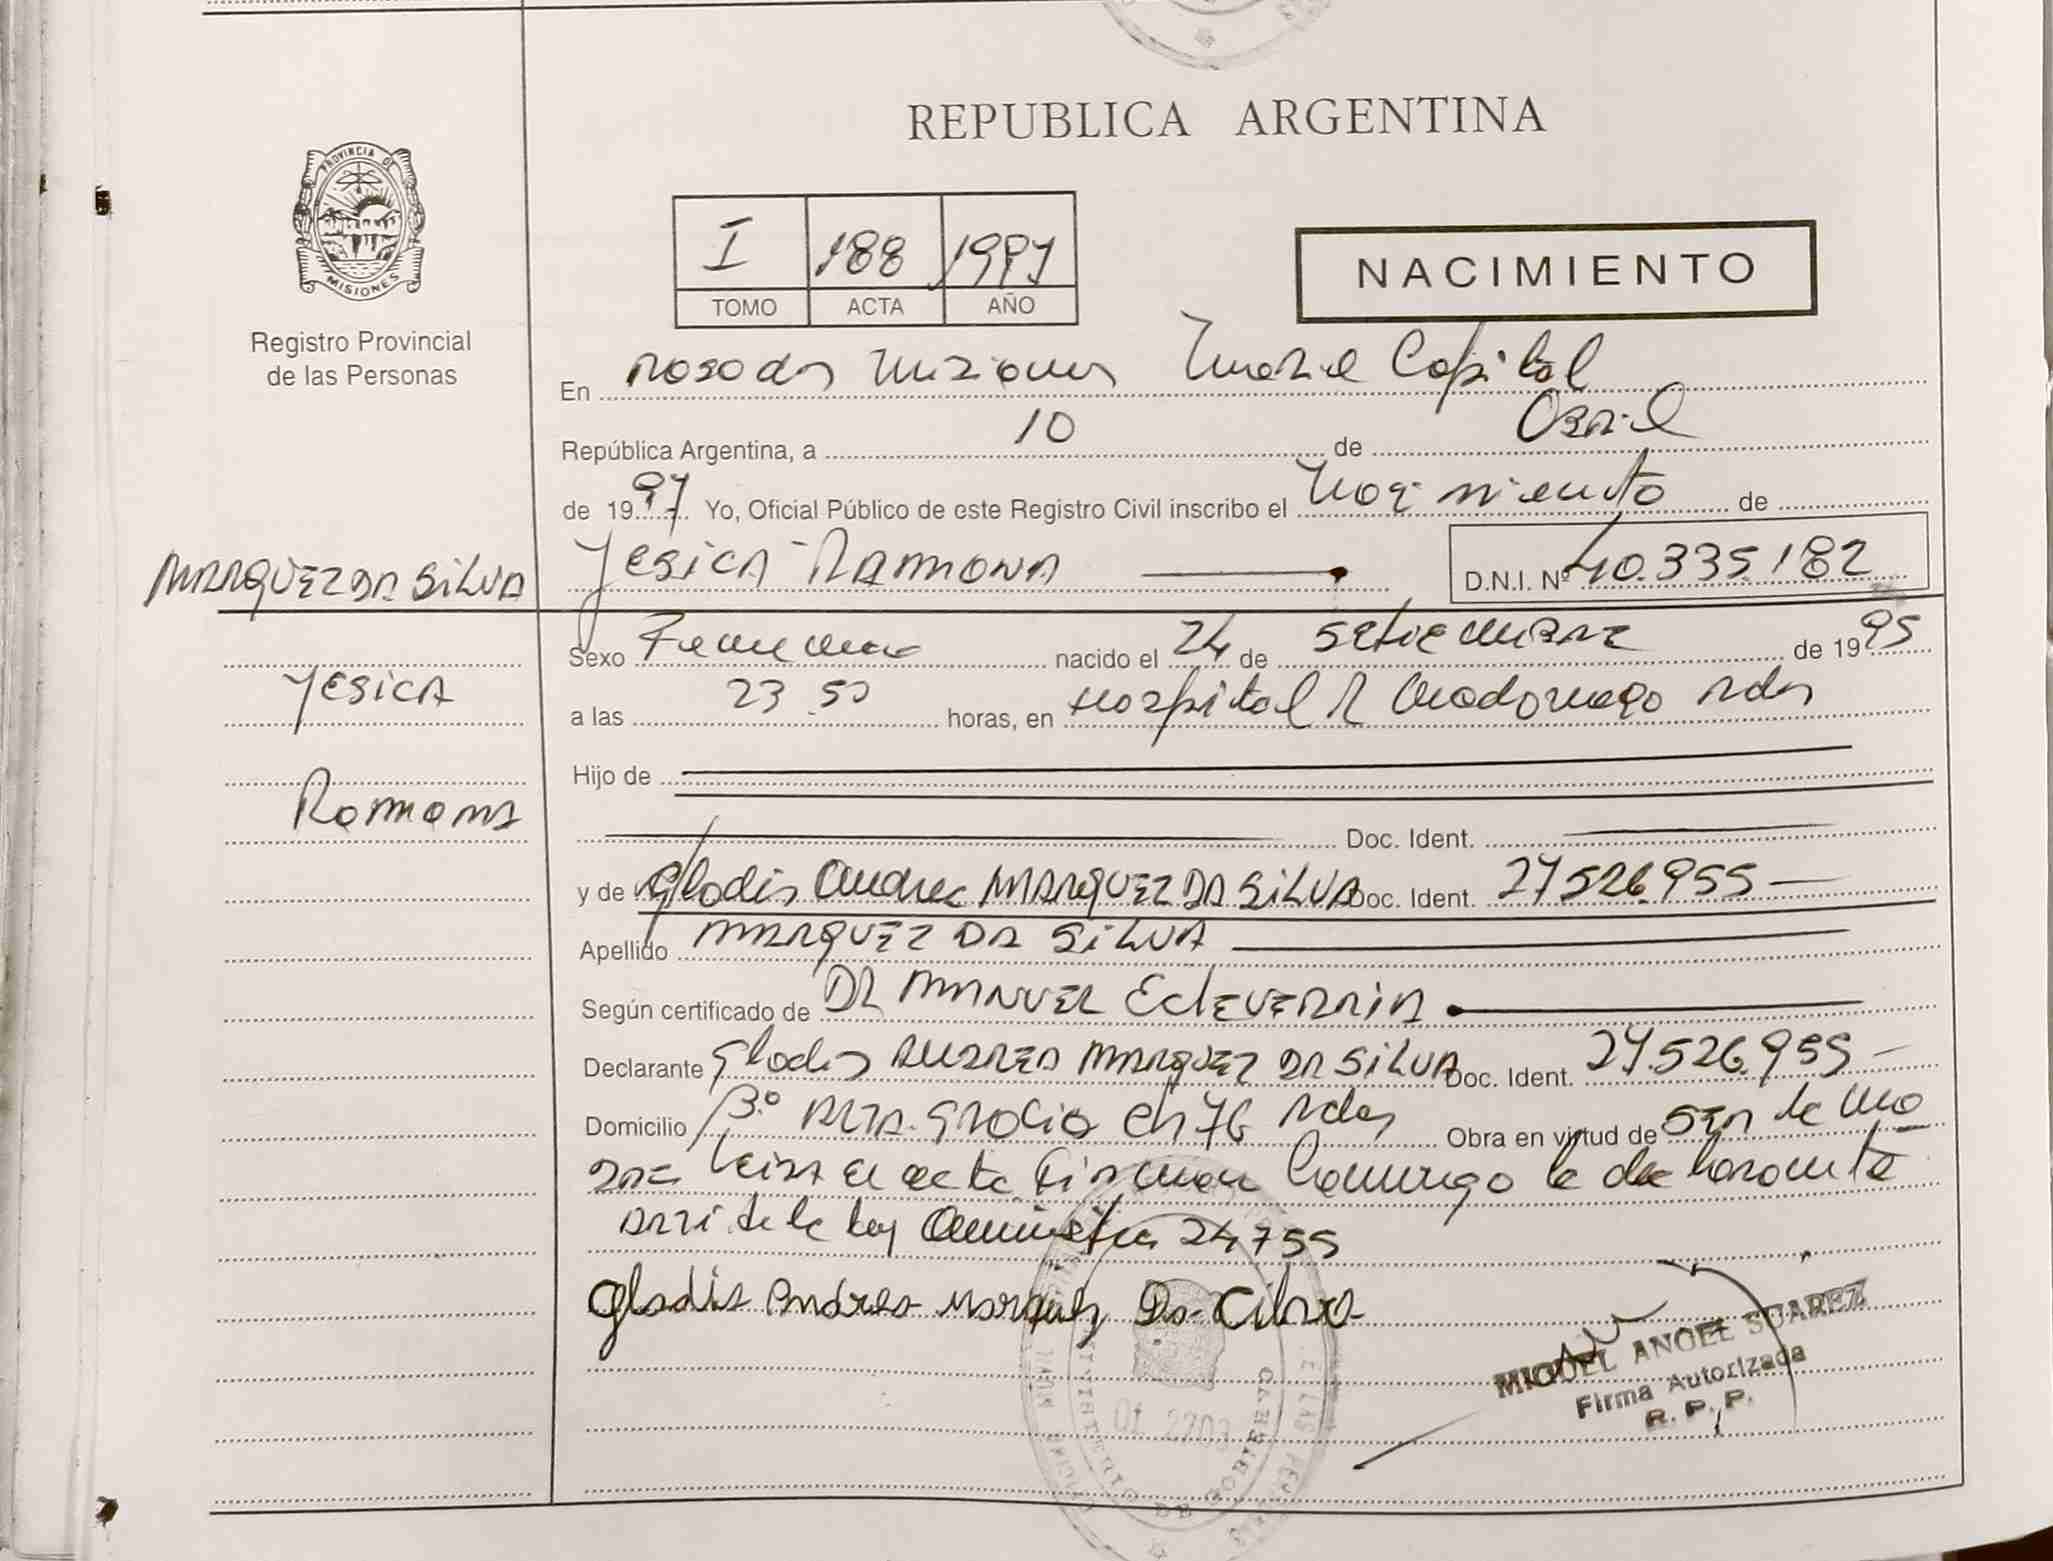 REPUBLICA ARGENTINA
PROVINCIA DE
MISIONES
Registro Provincial
de las Personas
I 188 1997
TOMO ACTA AÑO
NACIMIENTO
En Posadas Misiones Capital
República Argentina, a 10 de Abril
de 1997 Yo, Oficial Público de este Registro Civil inscribo el Nacimiento de
YESICA RAMONA D.N.I. Nº 40.335.182
MARQUEZ DA SILVA
YESICA
Ramona
Sexo Femenino nacido el 24 de SETIEMBRE de 1995
a las 23.50 horas, en Hospital R Madariaga Pdas
Hijo de
Doc. Ident.
y de Gladis Andrea MARQUEZ DA SILVA Doc. Ident. 27526.955
Apellido MARQUEZ DA SILVA
Según certificado de DR MANUEL EcheVERRIA
Declarante Gladis ANDREA MARQUEZ DA SILVA Doc. Ident. 27.526.955
Domicilio Bº ALTA GRACIA Ch 76 Pdas Obra en virtud de SER la Ma
DRE Leida el acta Firman Conmigo la declarante
de la ley Amnistia 24755
Gladis Andrea Marquez Da Cilva
MIGUEL ANGEL SUAREZ
Firma Autorizada
R. P. P.
MINISTERIO DE GOBIERNO